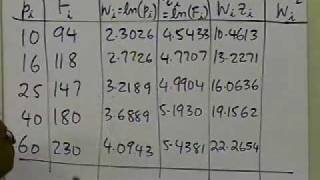 Pi Fi Wi=ln(Pi) =ln(Fi) Wi zi Wi²
10 94 2.3026 4.5433 10.4613
16 118 2.7726 4.7707 13.2271
25 147 3.2189 4.9904 16.0636
40 180 3.6889 5.1930 19.1562
60 230 4.0943 5.4381 22.2654